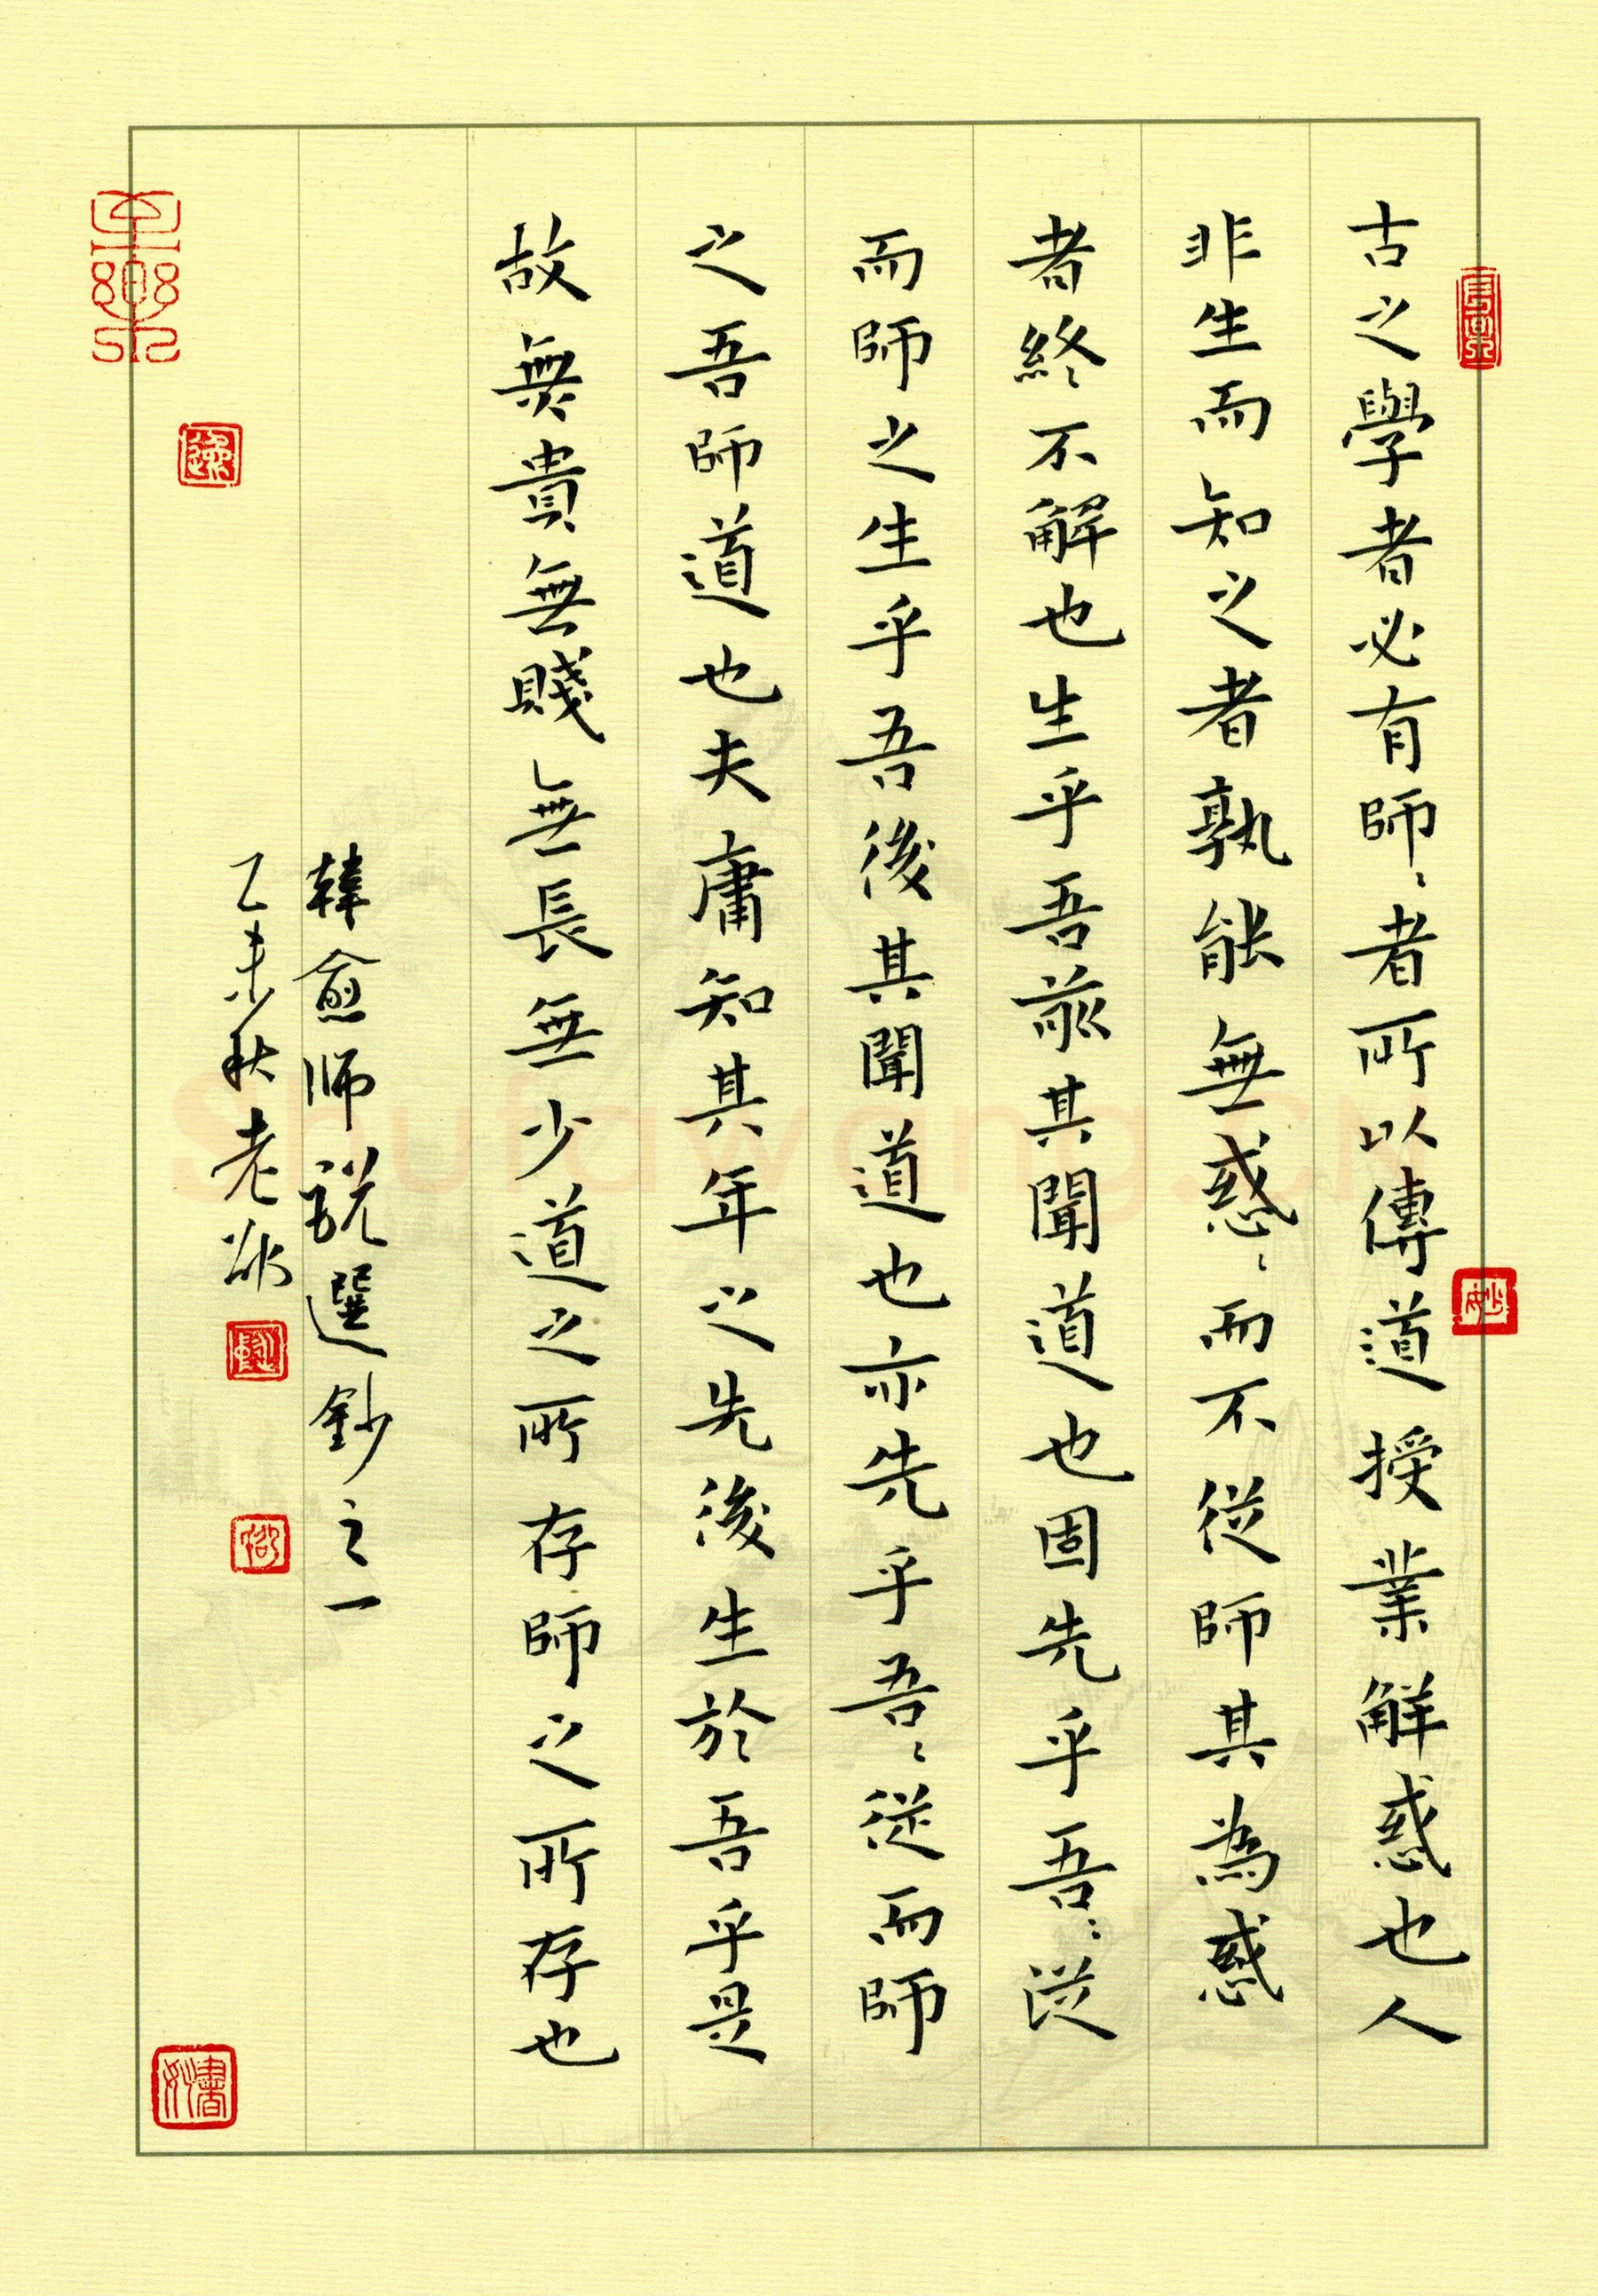 古之學者必有師〻者所以傳道授業解惑也人
非生而知之者孰能無惑〻而不從師其為惑
者終不解也生乎吾前其聞道也固先乎吾〻從
而師之生乎吾後其聞道也亦先乎吾〻從而師
之吾師道也夫庸知其年之先後生於吾乎是
故無貴無賤無長無少道之所存師之所存也
韓愈師說選鈔之一
乙未秋老
Shufawang.CN